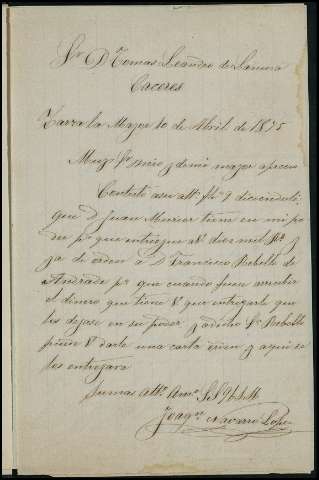 Sr D Tomas Leandro de
Caceres
Zarza la Mayor 10 de Abril de 1875
Muy Sr mio y de mi mayor aprecio
Contesto a su atta fha 9 diciendole
que D Juan tiene en mi po
der pa que entregue a V dies mil Rs y
ya de orden a D Francisco Rebollo de
Andrade pa que cuando fuera
el dinero que tiene V que entregarle que
los dejase en su poder, y dicho Sr Rebollo
V darle una carta y aqui se
los entregara
Su mas atto Amo S S Q b s M
Joaqn Navarro Lopez